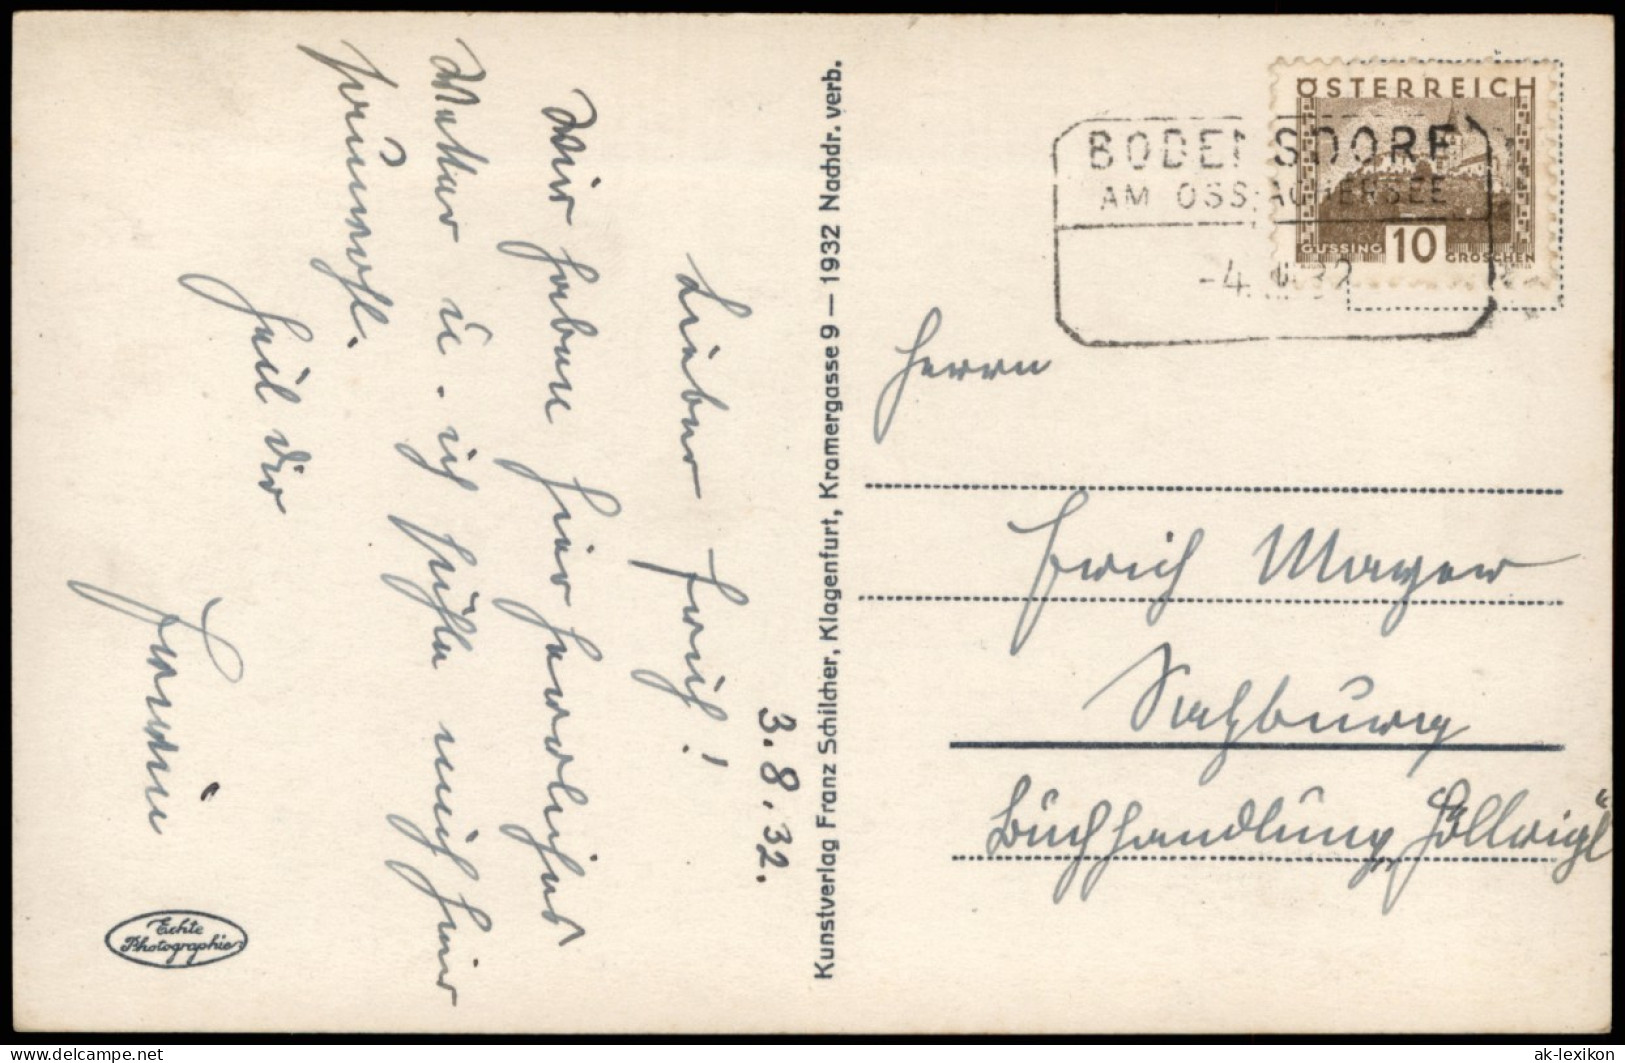 3. 8. 32.
Lieber Erich!
Wir haben hier herrliches
Wetter u. ich fühle mich hier
sauwohl.
Heil dir
Erwin
Echte
Photographie
Kunstverlag Franz Schilcher, Klagenfurt, Kramergasse 9 — 1932 Nachdr. verb.
ÖSTERREICH
GÜSSING 10 GROSCHEN
BODENSDORF
AM OSSIACHERSEE
-4. 32
Herrn
Erich Mayer
Salzburg
Buchhandlung „Höllrigl“
delcampe.net
ak-lexikon